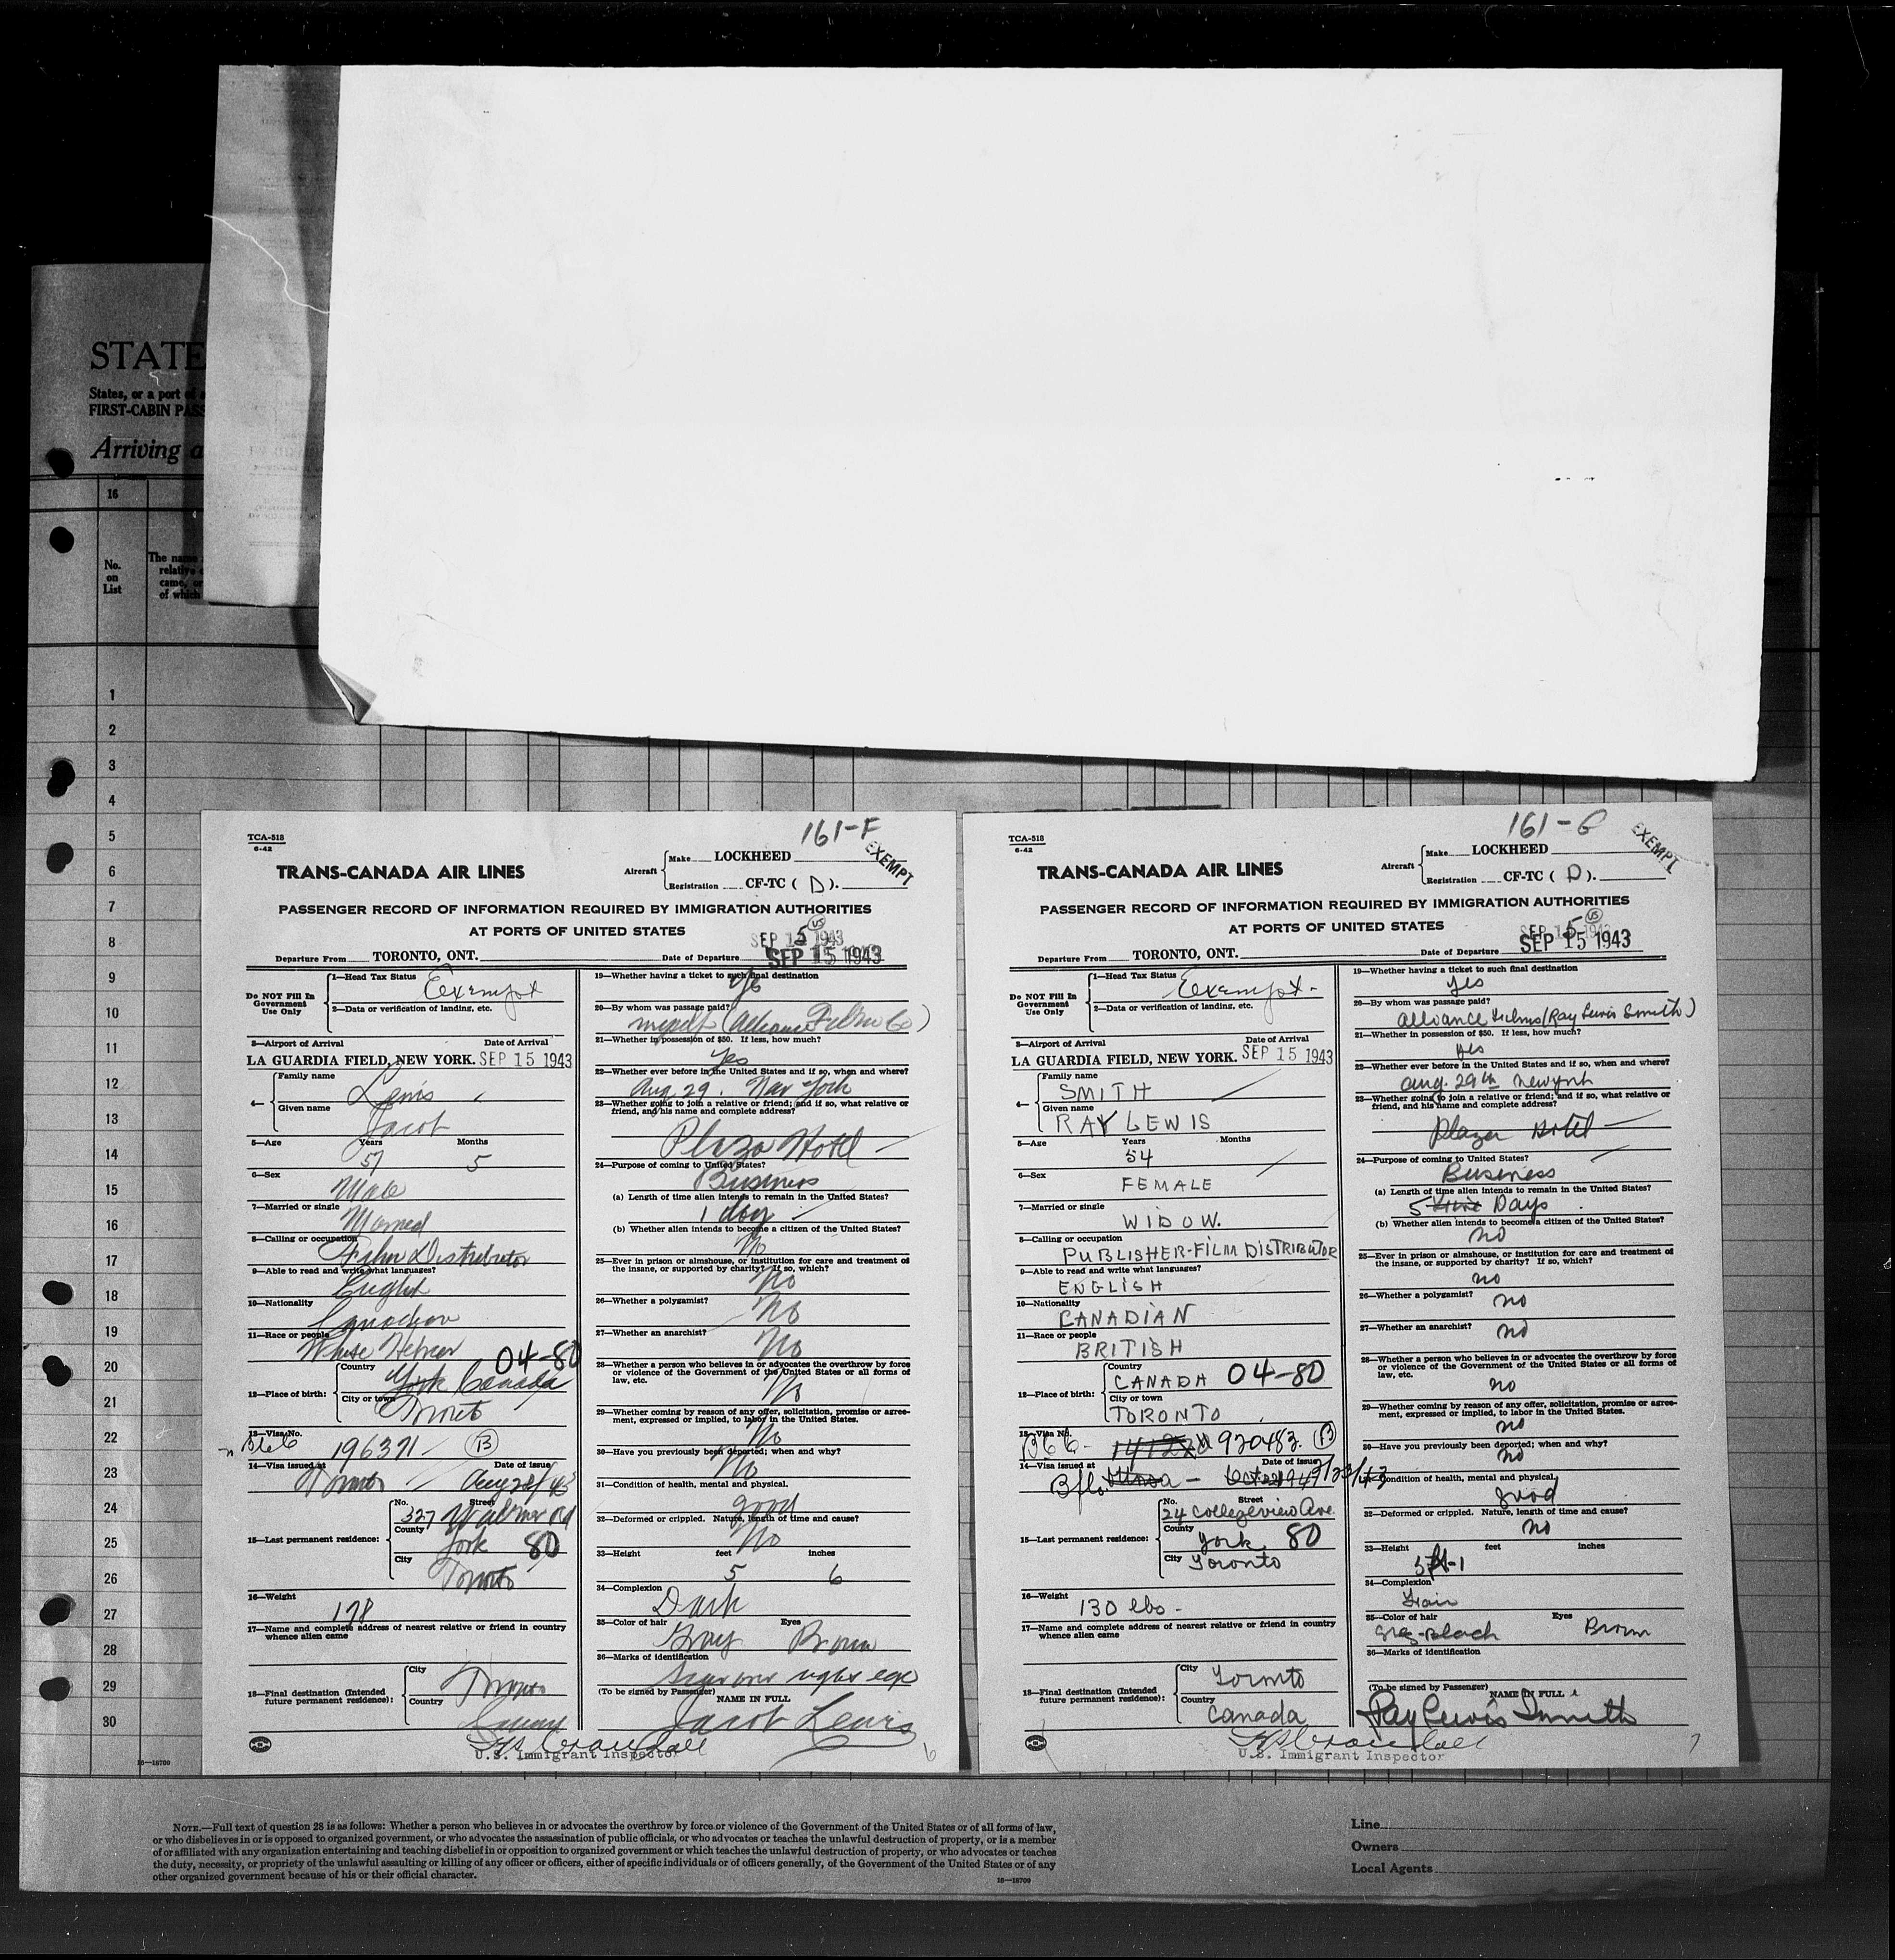 STATE
States, or a port of a
FIRST-CABIN PASS
Arriving a
16
No.
on
List
The name
relative
came, or
of which
1
2
3
4
5
6
7
8
9
10
11
12
13
14
15
16
17
18
19
20
21
22
23
24
25
26
27
28
29
30
16—18700
TCA-518
6-42
161-F
EXEMPT
TRANS-CANADA AIR LINES
Aircraft
Make LOCKHEED
Registration CF-TC ( D ).
PASSENGER RECORD OF INFORMATION REQUIRED BY IMMIGRATION AUTHORITIES
AT PORTS OF UNITED STATES
US
SEP 15 1943
Departure From TORONTO, ONT. Date of Departure SEP 15 1943
Do NOT Fill In
Government
Use Only
1—Head Tax Status Exempt
2—Data or verification of landing, etc.
3—Airport of Arrival Date of Arrival
LA GUARDIA FIELD, NEW YORK. SEP 15 1943
4—
Family name
Lewis
Given name
Jacob
5—Age Years Months
57 5
6—Sex
Male
7—Married or single
Married
8—Calling or occupation
Film Distributor
9—Able to read and write what languages?
English
10—Nationality
Canadian
11—Race or people
White Hebrew
04-80
12—Place of birth:
Country
York Canada
City or town
Toronto
13—Visa No.
B66 196371 B
14—Visa issued at Date of issue
Toronto Aug 28/43
15—Last permanent residence:
No. Street
327 Walmer Rd
County
York 80
City
Toronto
16—Weight
178
17—Name and complete address of nearest relative or friend in country
whence alien came
18—Final destination (Intended
future permanent residence):
City
Toronto
Country
Canada
19—Whether having a ticket to such final destination
Yes
20—By whom was passage paid?
myself (Alliance Films Co)
21—Whether in possession of $50. If less, how much?
Yes
22—Whether ever before in the United States and if so, when and where?
Aug 29. New York
23—Whether going to join a relative or friend; and if so, what relative or
friend, and his name and complete address?
Plaza Hotel
24—Purpose of coming to United States?
Business
(a) Length of time alien intends to remain in the United States?
1 day
(b) Whether alien intends to become a citizen of the United States?
No
25—Ever in prison or almshouse, or institution for care and treatment of
the insane, or supported by charity? If so, which?
No
26—Whether a polygamist?
No
27—Whether an anarchist?
No
28—Whether a person who believes in or advocates the overthrow by force
or violence of the Government of the United States or all forms of
law, etc.
No
29—Whether coming by reason of any offer, solicitation, promise or agree-
ment, expressed or implied, to labor in the United States.
No
30—Have you previously been deported; when and why?
No
31—Condition of health, mental and physical.
good
32—Deformed or crippled. Nature, length of time and cause?
No
33—Height feet inches
5 6
34—Complexion
Dark
35—Color of hair Eyes
Gray Brown
36—Marks of identification
Scar over right eye
(To be signed by Passenger)
NAME IN FULL
Jacob Lewis
U.S. Immigrant Inspector
6
TCA-518
6-42
161-G
EXEMPT
TRANS-CANADA AIR LINES
Aircraft
Make LOCKHEED
Registration CF-TC ( D ).
PASSENGER RECORD OF INFORMATION REQUIRED BY IMMIGRATION AUTHORITIES
AT PORTS OF UNITED STATES
US
SEP 15 1943
Departure From TORONTO, ONT. Date of Departure SEP 15 1943
Do NOT Fill In
Government
Use Only
1—Head Tax Status Exempt
2—Data or verification of landing, etc.
3—Airport of Arrival Date of Arrival
LA GUARDIA FIELD, NEW YORK. SEP 15 1943
4—
Family name
SMITH
Given name
RAY LEWIS
5—Age Years Months
54
6—Sex
FEMALE
7—Married or single
WIDOW.
8—Calling or occupation
PUBLISHER-FILM DISTRIBUTOR
9—Able to read and write what languages?
ENGLISH
10—Nationality
CANADIAN
11—Race or people
BRITISH
12—Place of birth:
Country
CANADA 04-80
City or town
TORONTO
13—Visa No.
B66- 920483. B
14—Visa issued at Date of issue
Bflo
15—Last permanent residence:
No. Street
24 Collegeview Ave.
County
York 80
City Toronto
16—Weight
130 lbs-
17—Name and complete address of nearest relative or friend in country
whence alien came
18—Final destination (Intended
future permanent residence):
City
Toronto
Country
Canada
19—Whether having a ticket to such final destination
yes
20—By whom was passage paid?
Alliance Films (Ray Lewis Smith)
21—Whether in possession of $50. If less, how much?
yes
22—Whether ever before in the United States and if so, when and where?
Aug. 29th New York
23—Whether going to join a relative or friend; and if so, what relative or
friend, and his name and complete address?
Plaza Hotel
24—Purpose of coming to United States?
Business
(a) Length of time alien intends to remain in the United States?
5 Days
(b) Whether alien intends to become a citizen of the United States?
no
25—Ever in prison or almshouse, or institution for care and treatment of
the insane, or supported by charity? If so, which?
no
26—Whether a polygamist?
no
27—Whether an anarchist?
no
28—Whether a person who believes in or advocates the overthrow by force
or violence of the Government of the United States or all forms of
law, etc.
no
29—Whether coming by reason of any offer, solicitation, promise or agree-
ment, expressed or implied, to labor in the United States.
no
30—Have you previously been deported; when and why?
no
31—Condition of health, mental and physical.
good
32—Deformed or crippled. Nature, length of time and cause?
no
33—Height feet inches
5ft-1
34—Complexion
Fair
35—Color of hair Eyes
Grey-Black Brown
36—Marks of identification
(To be signed by Passenger)
NAME IN FULL
Ray Lewis Smith
U.S. Immigrant Inspector
7
NOTE.—Full text of question 28 is as follows: Whether a person who believes in or advocates the overthrow by force or violence of the Government of the United States or of all forms of law,
or who disbelieves in or is opposed to organized government, or who advocates the assassination of public officials, or who advocates or teaches the unlawful destruction of property, or is a member
of or affiliated with any organization entertaining and teaching disbelief in or opposition to organized government or which teaches the unlawful destruction of property, or who advocates or teaches
the duty, necessity, or propriety of the unlawful assaulting or killing of any officer or officers, either of specific individuals or of officers generally, of the Government of the United States or of any
other organized government because of his or their official character.
16—18700
Line
Owners
Local Agents